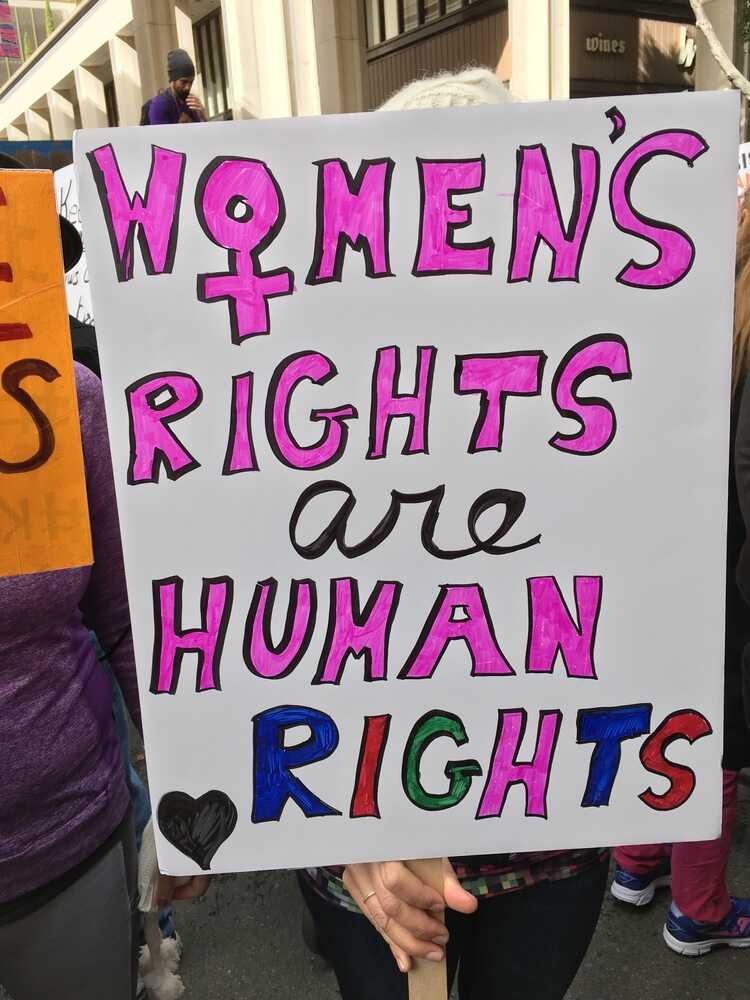 wines
WOMEN'S
RIGHTS
are
HUMAN
RIGHTS
S